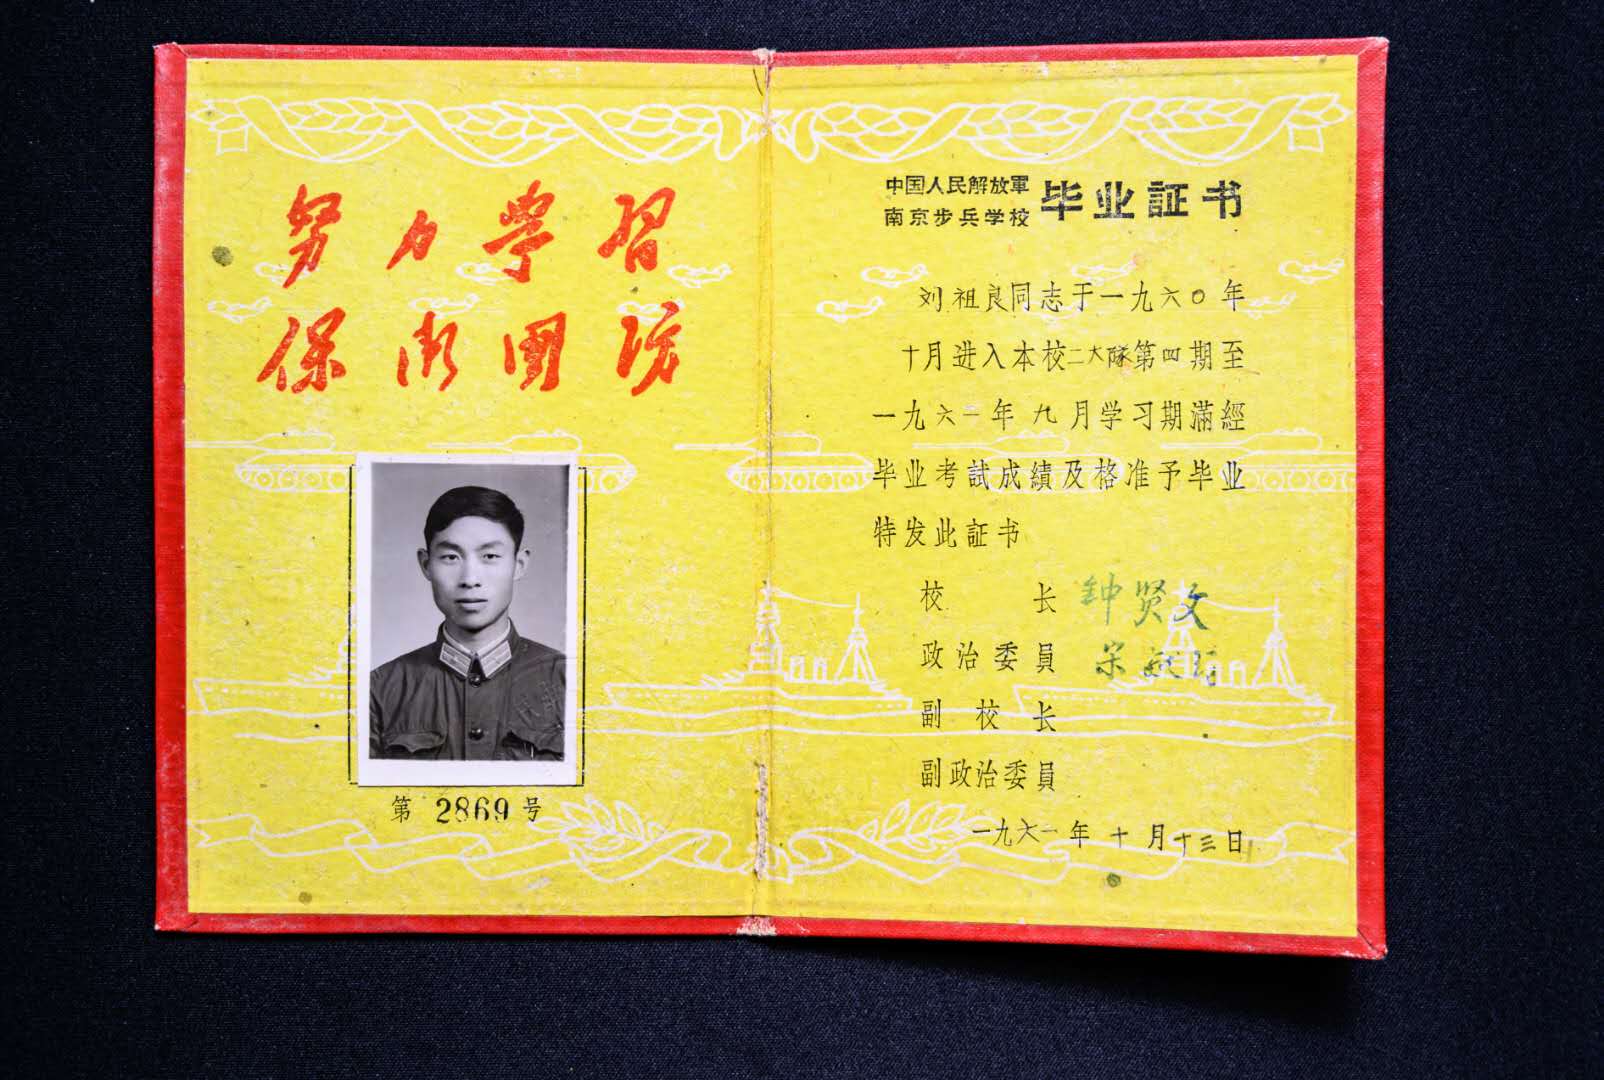 努力学習
保衛國防
第 2869 号
中国人民解放軍
南京步兵学校
毕业証书
刘祖良同志于一九六〇年
十月进入本校二大隊第四期至
一九六一年九月学习期滿經
毕业考試成績及格准予毕业
特发此証书
校长 钟贤文
政治委員 宋
副校长
副政治委員
一九六一年十月十三日